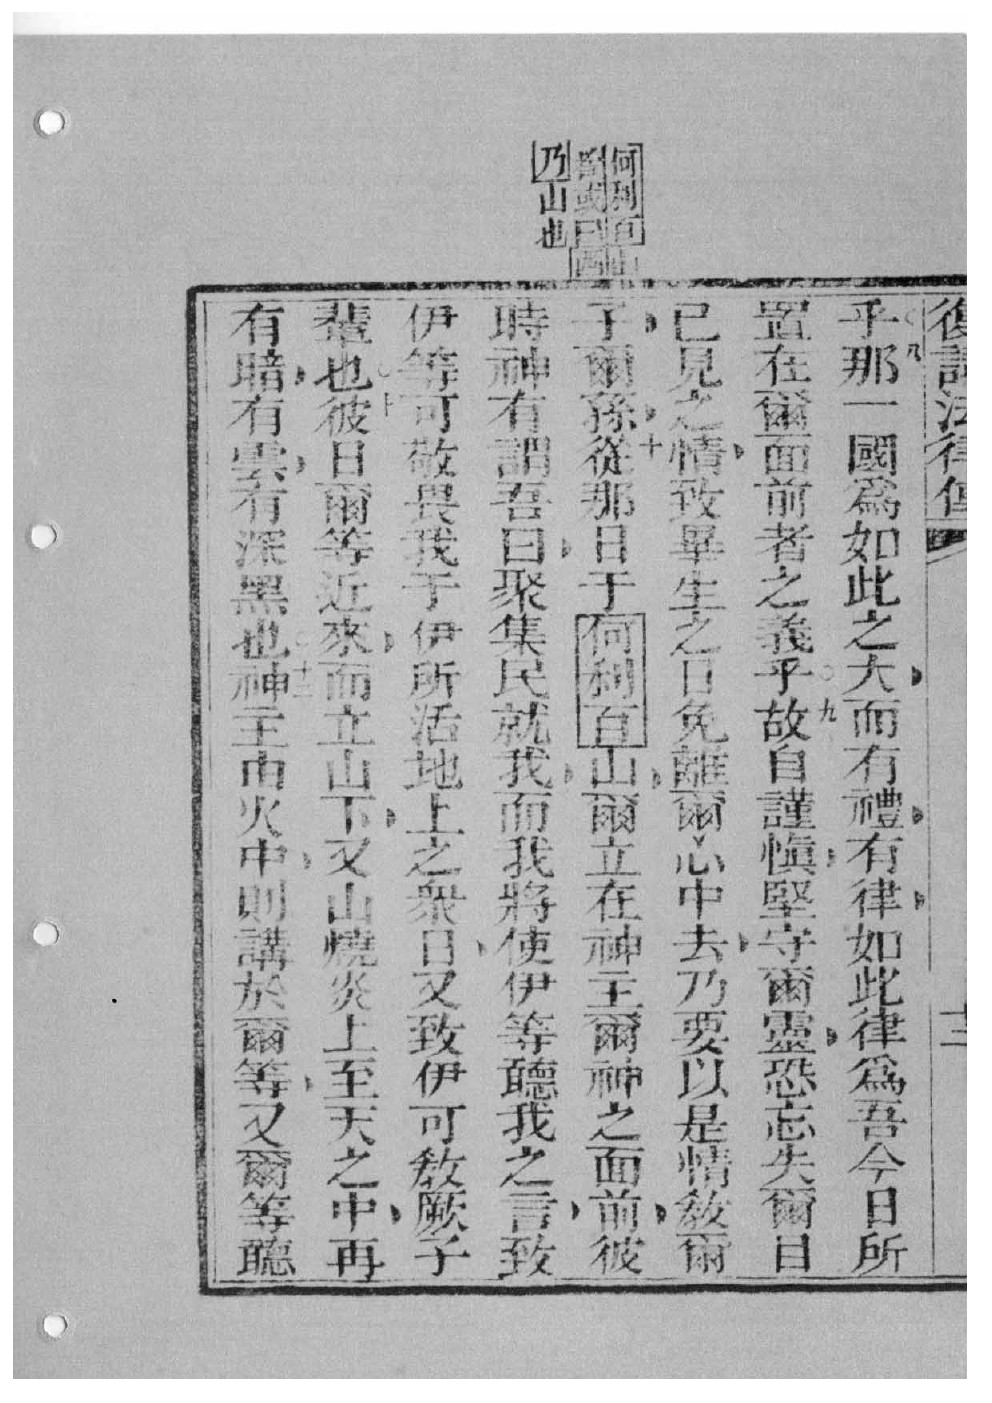 復講法律傳
十二
何利百山
西
乃山也
乎○八那一國爲如此之大而有禮有律如此律爲吾今日所
置在爾面前者之義乎○九故自謹愼堅守爾靈恐忘失爾目
已見之情致畢生之日免離爾心中去乃要以是情敎爾
子爾孫十從那日于何利百山爾立在神主爾神之面前彼
時神有謂吾曰聚集民就我而我將使伊等聽我之言致
伊等可敬畏我于伊所活地上之衆日又致伊可敎厥子
輩也○十一彼日爾等近來而立山下又山燒炎上至天之中再
有暗有雲有深黑也○十二神主由火中則講於爾等又爾等聽